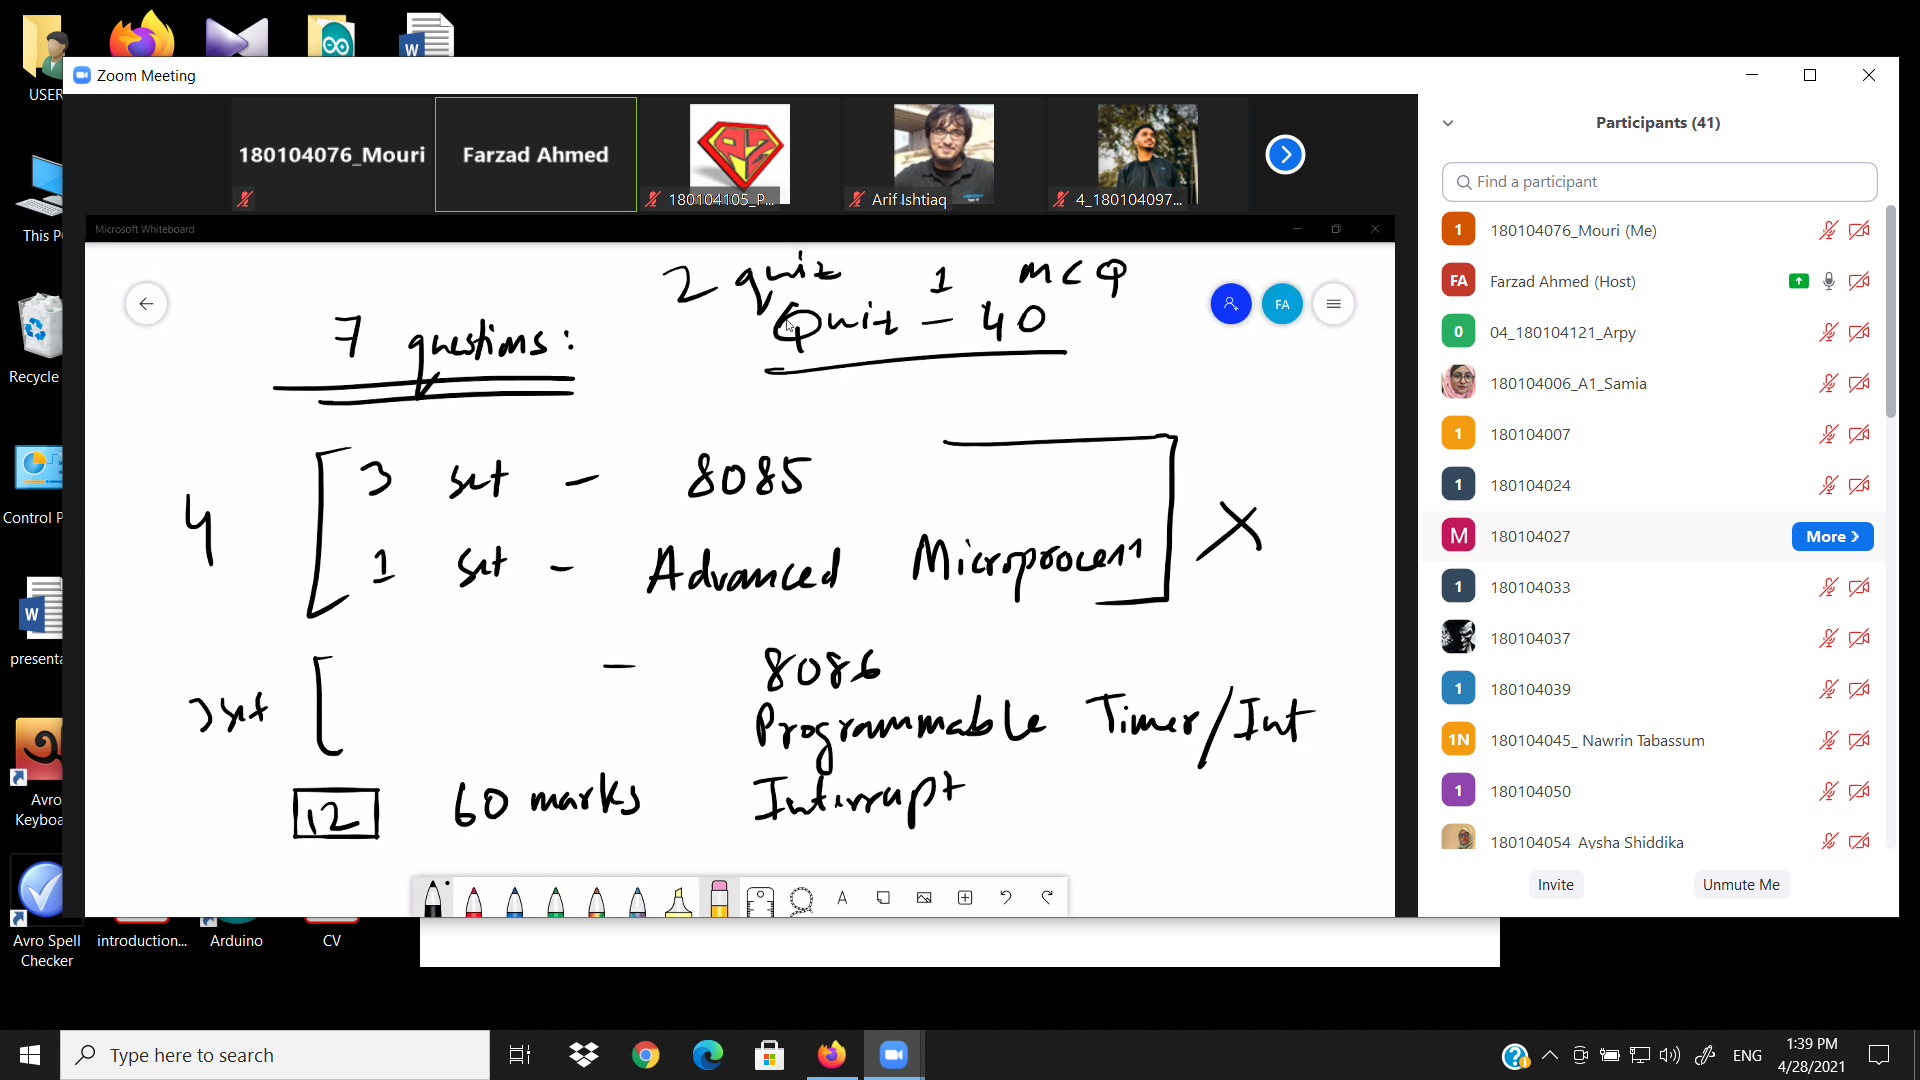 USER
This P
Recycle
Control P
presenta
Avro
Keyboa
Avro Spell
Checker
introduction...
Arduino
CV
Zoom Meeting
180104076_Mouri
Farzad Ahmed
180104105_P...
Arif Ishtiaq
4_180104097...
Microsoft Whiteboard
2 quiz 1 MCQ
Quiz - 40
7 questions:
FA
4
3 set - 8085
1 set - Advanced Microprocess
X
3 set
- 8086
Programmable Timer/Int
12 60 marks Interrupt
Participants (41)
Find a participant
1 180104076_Mouri (Me)
FA Farzad Ahmed (Host)
0 04_180104121_Arpy
180104006_A1_Samia
1 180104007
1 180104024
M 180104027 More
1 180104033
180104037
1 180104039
1N 180104045_ Nawrin Tabassum
1 180104050
180104054_Aysha Shiddika
Invite Unmute Me
Type here to search
ENG
1:39 PM
4/28/2021